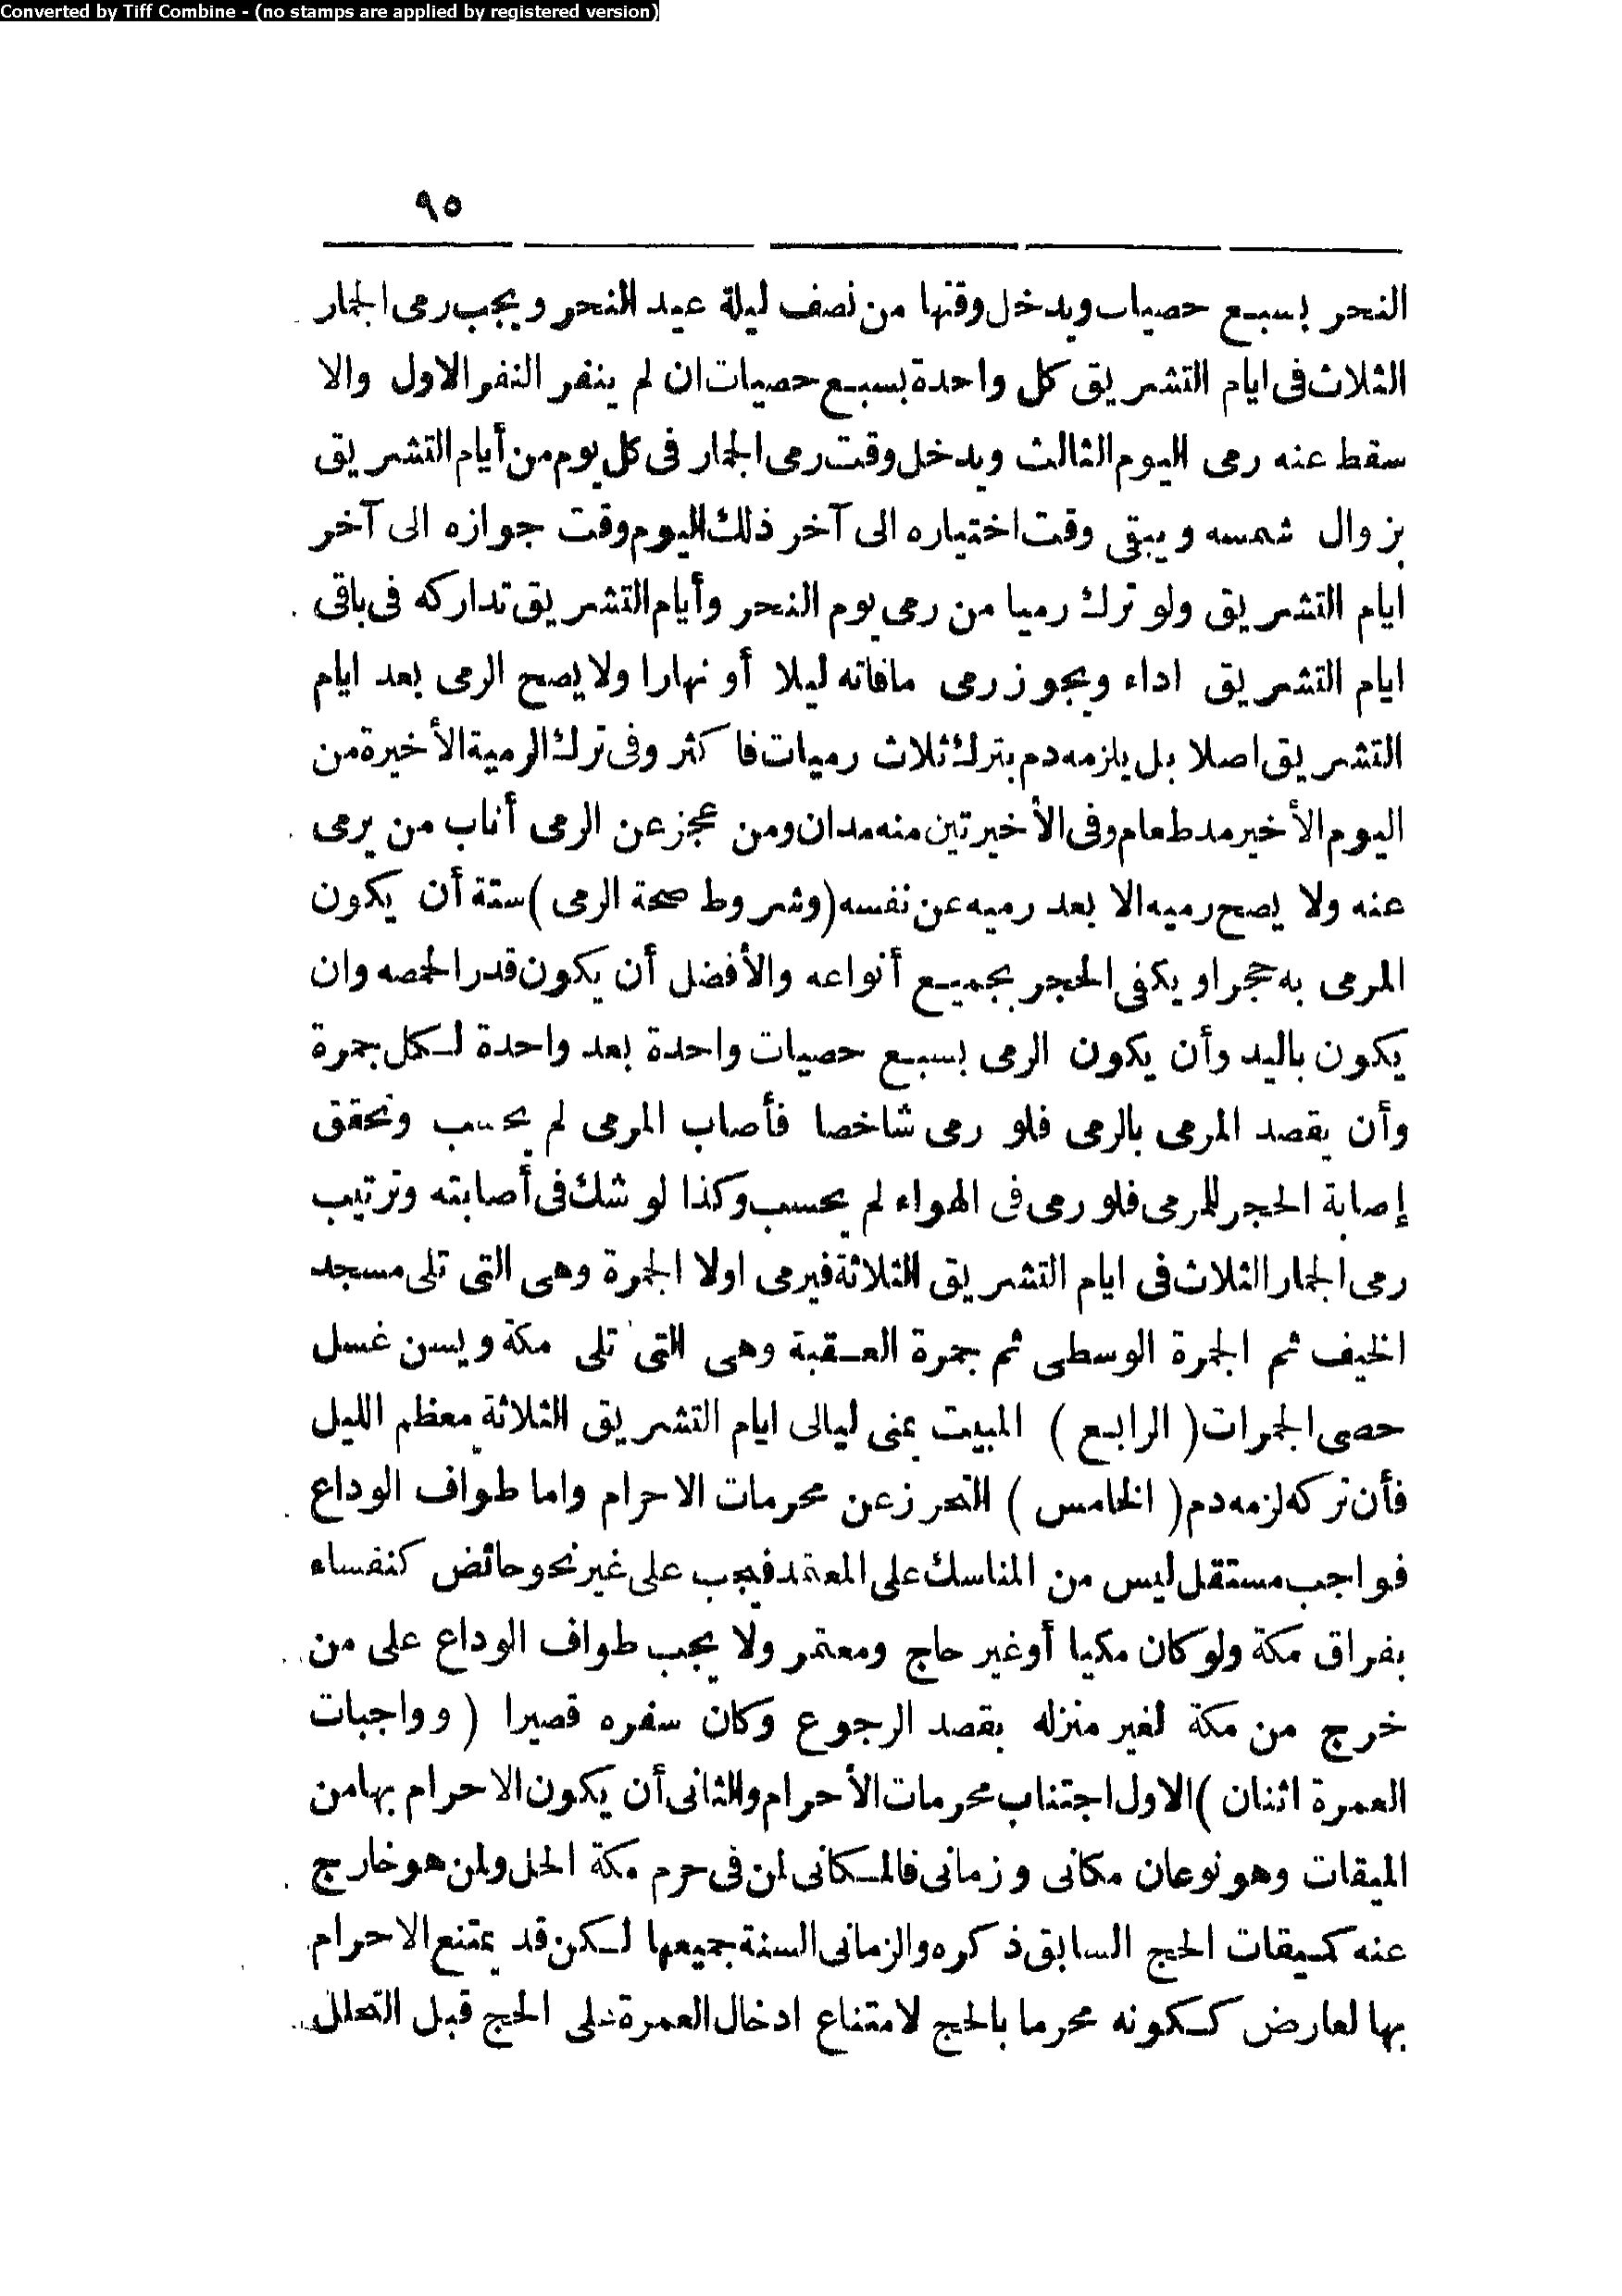 Converted by Tiff Combine - (no stamps are applied by registered version)
٩٥
النحر بسبع حصيات ويدخل وقتها من نصف ليلة عيد النحر ويجب رمى الجمار
الثلاث فى ايام التشريق كل واحدة بسبع حصيات ان لم ينفر النفر الاول والا
سقط عنه رمى اليوم الثالث ويدخل وقت رمى الجمار فى كل يوم من أيام التشريق
بزوال شمسه ويبقى وقت اختياره الى آخر ذلك اليوم وقت جوازه الى آخر
ايام التشريق ولو ترك رميا من رمى يوم النحر وأيام التشريق تداركه فى باقى
ايام التشريق اداء ويجوز رمى مافاته ليلا أو نهارا ولا يصح الرمى بعد ايام
التشريق اصلا بل يلزمه دم بترك ثلاث رميات فاكثر وفى ترك الرمية الأخيرة من
اليوم الأخير مد طعام وفى الأخيرتين منه مدان ومن عجز عن الرمى أناب من يرمى
عنه ولا يصح رميه الا بعد رميه عن نفسه (وشروط صحة الرمى) ستة أن يكون
المرمى به حجرا ويكفى الحجر بجميع أنواعه والأفضل أن يكون قدر الحمصه وان
يكون باليد وأن يكون الرمى بسبع حصيات واحدة بعد واحدة لكل جمرة
وأن يقصد المرمى بالرمى فلو رمى شاخصا فأصاب المرمى لم يحسب وتحقق
إصابة الحجر للمرمى فلو رمى فى الهواء لم يحسب وكذا لو شك فى أصابته وترتيب
رمى الجمار الثلاث فى ايام التشريق الثلاثة فيرمى اولا الجمرة وهى التى تلى مسجد
الخيف ثم الجمرة الوسطى ثم جمرة العقبة وهى التى تلى مكة ويسن غسل
حصى الجمرات (الرابع) المبيت بمنى ليالى ايام التشريق الثلاثة معظم الليل
فأن تركه لزمه دم (الخامس) التحرز عن محرمات الاحرام واما طواف الوداع
فواجب مستقل ليس من المناسك على المعتمد فيجب على غير نحو حائض كنفساء
بفراق مكة ولو كان مكيا أو غير حاج ومعتمر ولا يجب طواف الوداع على من
خرج من مكة لغير منزله بقصد الرجوع وكان سفره قصيرا (وواجبات
العمرة اثنان) الاول اجتناب محرمات الأحرام والثانى أن يكون الاحرام بها من
الميقات وهو نوعان مكانى وزمانى فالمكانى لمن فى حرم مكة الحل ولمن هو خارج
عنه كميقات الحج السابق ذكره والزمانى السنة جميعها لكن قد يمتنع الاحرام
بها لعارض ككونه محرما بالحج لامتناع ادخال العمرة على الحج قبل التحلل